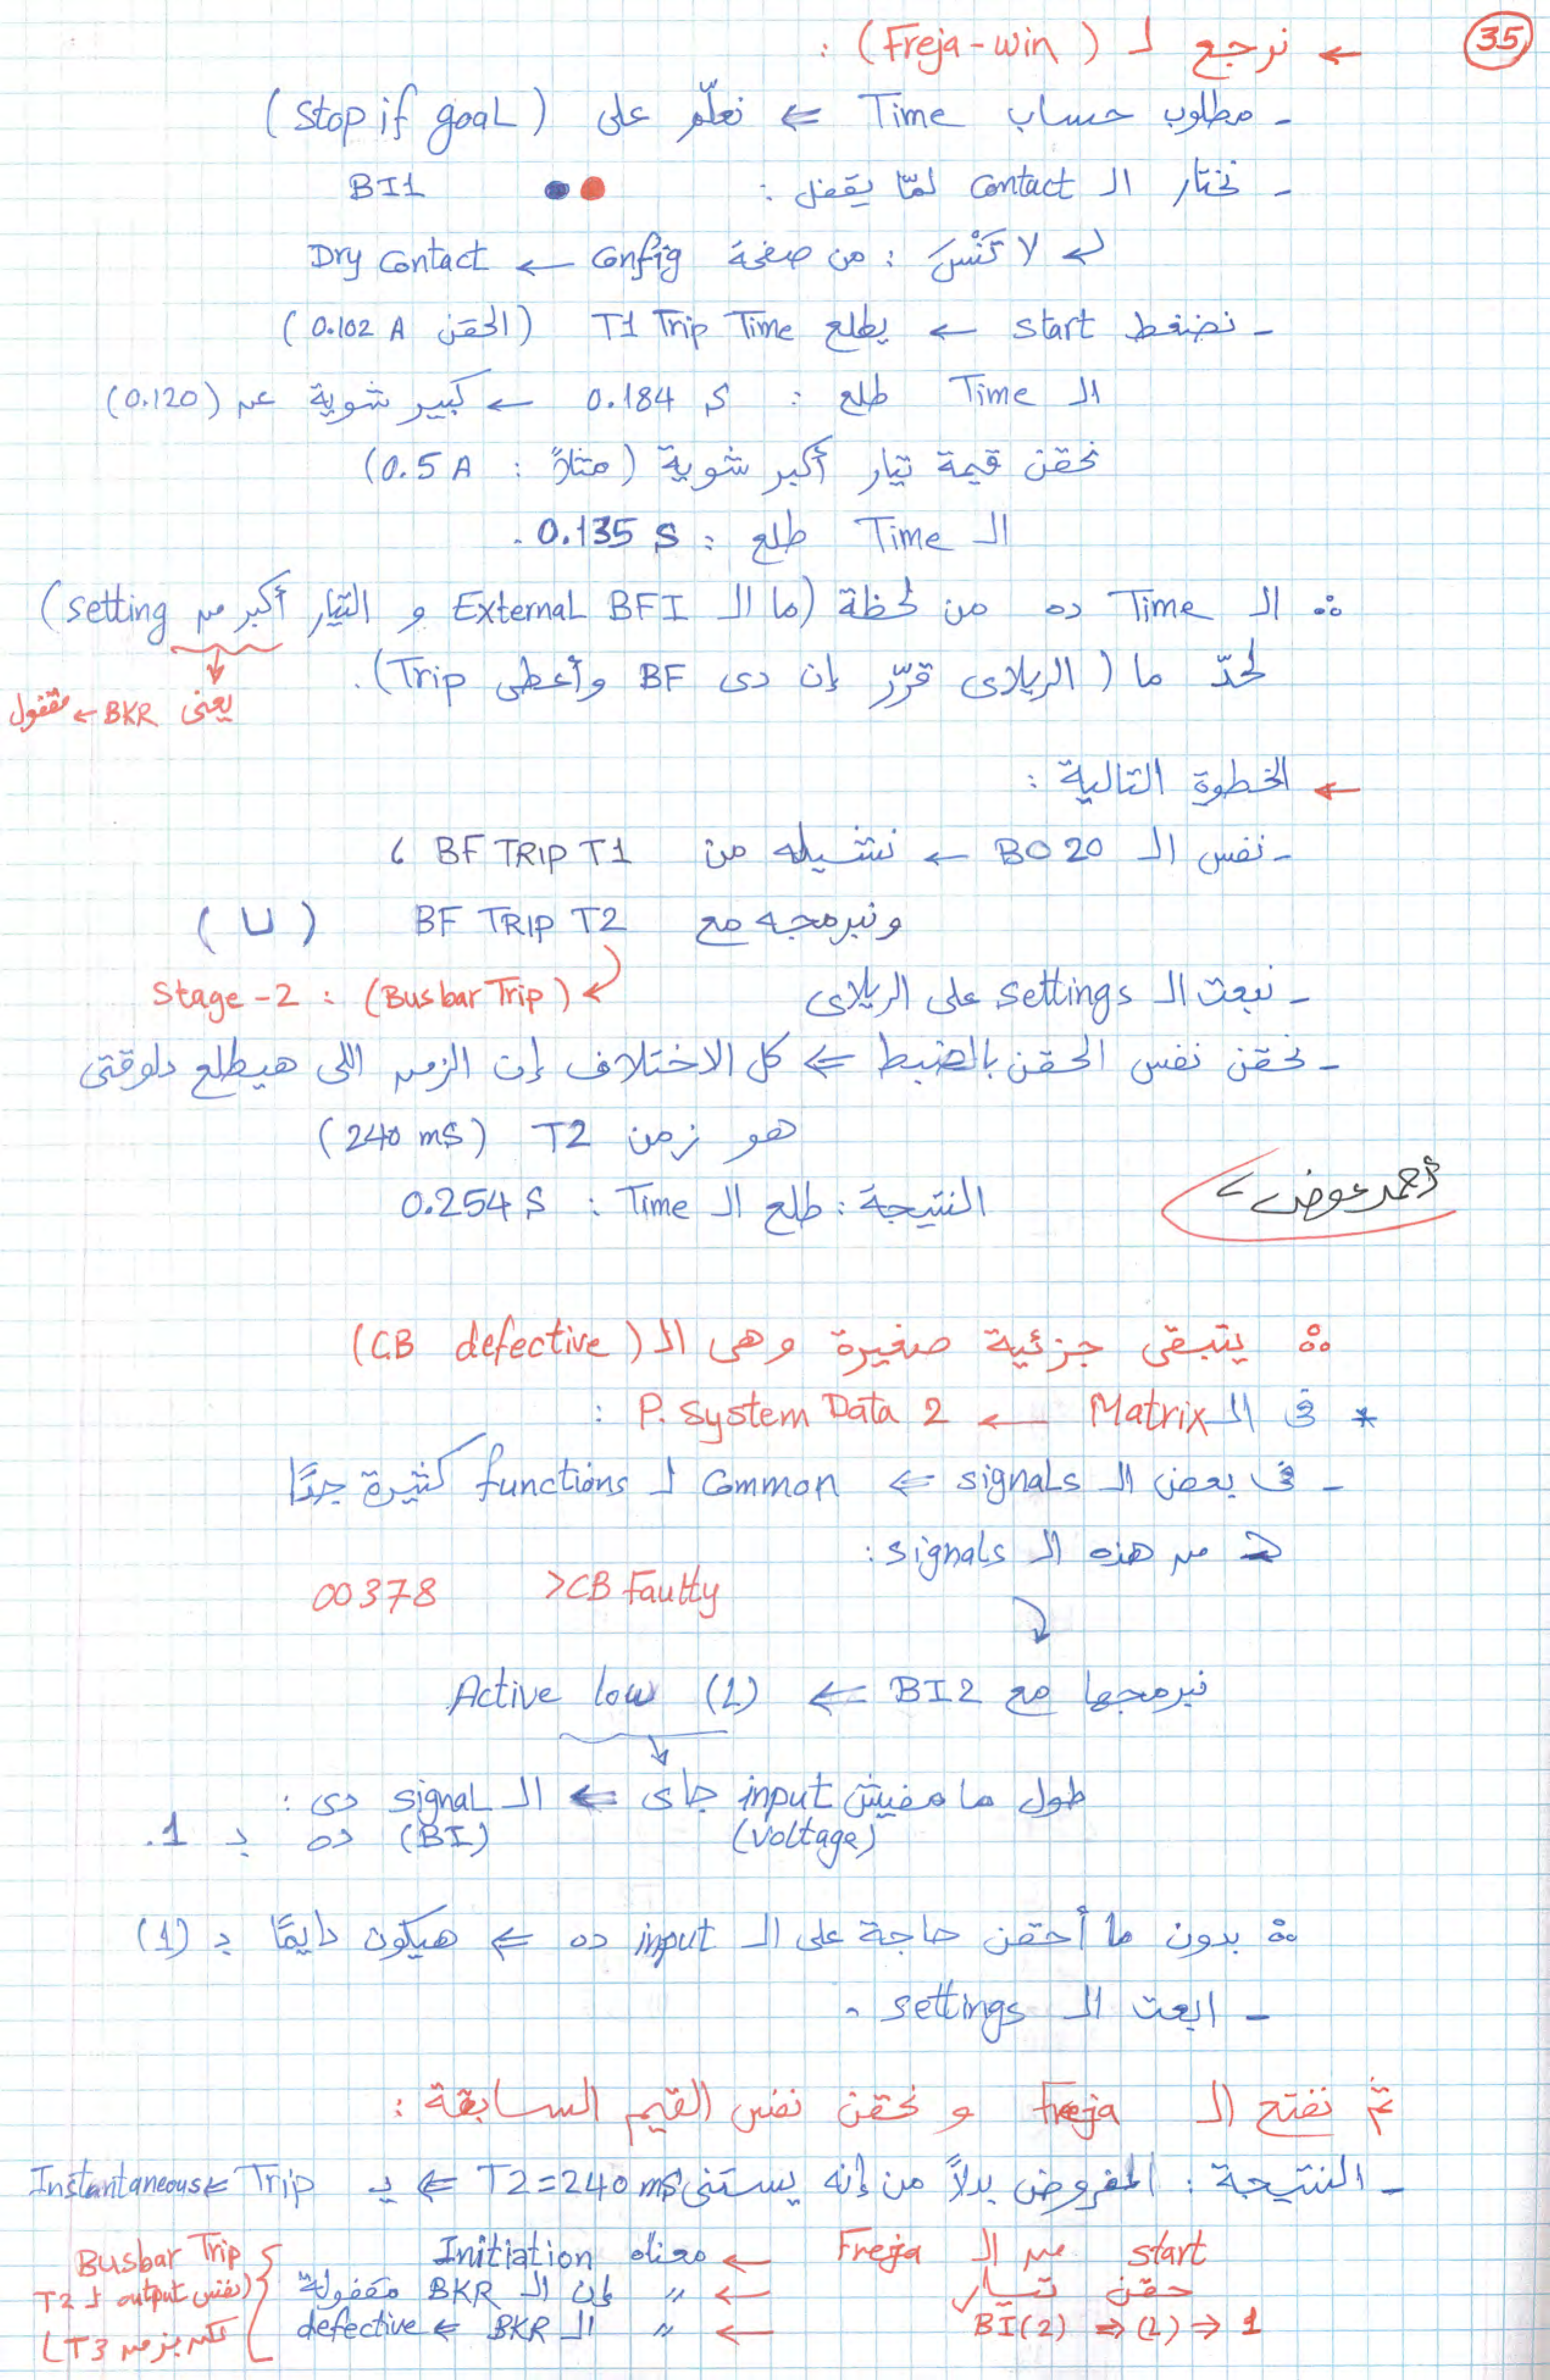 35
← نرجع لـ (Freja-win) :
- مطلوب حساب Time ⇐ نعلّم على (stop if goal)
- نختار الـ contact لمّا يقفل : BI1
لا تَنْسَ : من صفحة config ← Dry contact
- نضغط start ← يطلع T1 Trip Time (الحقن 0.102 A)
الـ Time طلع : 0.184 s ← كبير شوية عن (0.120)
نحقن قيمة تيار أكبر شوية (مثلاً : 0.5 A)
الـ Time طلع : 0.135 s .
∴ الـ Time ده من لحظة (ما الـ External BFI و التيار أكبر من setting)
لحدّ ما (الريلاى قرّر إن دى BF وأعطى Trip).
يعنى BKR ← مقفول
← الخطوة التالية :
- نفس الـ BO20 ← نشيله من BF TRIP T1 ،
ونبرمجه مع BF TRIP T2 (U)
Stage-2 : (Busbar Trip)
- نبعت الـ settings على الريلاى
- نحقن نفس الحقن بالضبط ⇐ كل الاختلاف إن الزمن اللى هيطلع دلوقتى
هو زمن T2 (240 ms)
النتيجة : طلع الـ Time : 0.254 s
أحمد عوض
∴ يتبقى جزئية صغيرة وهى الـ (CB defective)
* فى الـ Matrix ← P. System Data 2 :
- فى بعض الـ signals ⇐ Common لـ functions كثيرة جدًا
من هذه الـ signals :
00378 >CB Faulty
نبرمجها مع BI2 ⇐ Active low (L)
طول ما مفيش input جاى ⇐ الـ signal دى :
(voltage) (BI) ده بـ 1.
∴ بدون ما أحقن حاجة على الـ input ده ⇐ هيكون دايمًا بـ (1)
- ابعت الـ settings .
ثم نفتح الـ Freja و نحقن نفس القيم السابقة :
- النتيجة : المفروض بدلاً من إنه يستنى T2=240 ms ⇐ يـ Trip ⇐ Instantaneous
start من الـ Freja ← معناه Initiation
حقن تيار ← " إن الـ BKR مقفولة
BI(2) ⇒ (L) ⇒ 1 ← " الـ BKR ⇐ defective
Busbar Trip
(نفس output لـ T2
لكن بزمن T3)